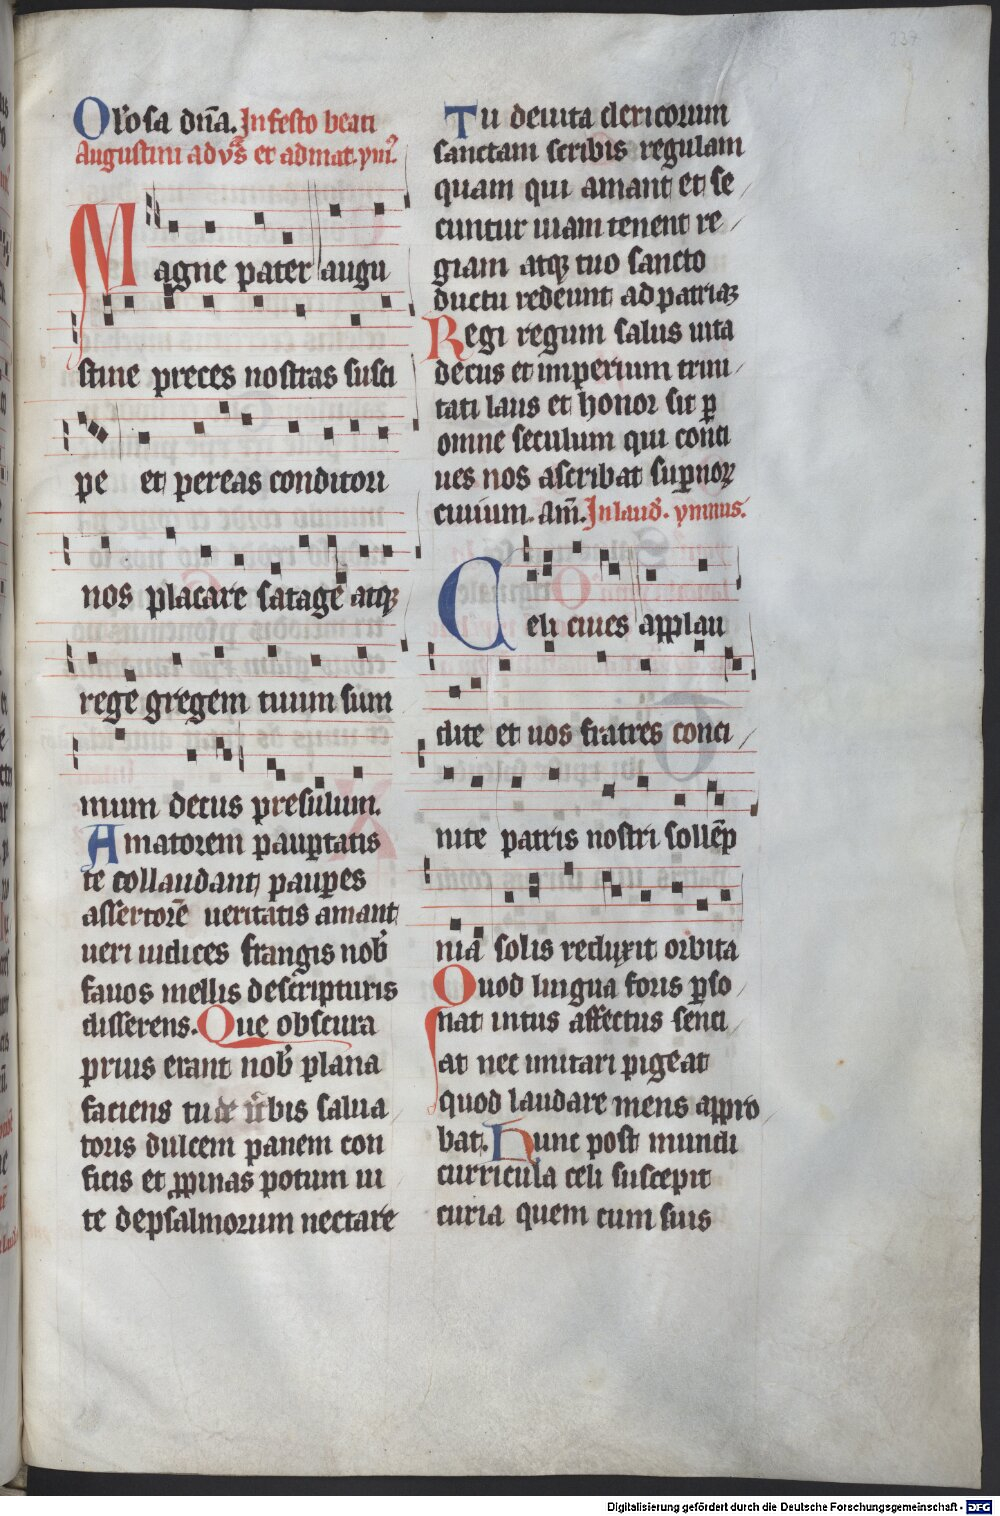 Olosa dn̄a. In festo beati
Augustini ad vs̄ et ad mat. ym̄.
Magne pater augu
stine preces nostras susci
pe et per eas conditori
nos placare satage atqꝫ
rege gregem tuum sum
mum decus presulum.
Amatorem paup̄tatis
te collaudant paup̄es
assertorē veritatis amant
ueri iudices frangis nob̄
fauos mellis de scripturis
disserens. Que obscura
prius erant nob̄ plana
faciens tu de ūbis salua
toris dulcem panem con
ficis et ꝓpinas potum ui
te de psalmorum nectare
Tu de uita clericorum
sanctam scribis regulam
quam qui amant et se /
cuntur uiam tenent re /
giam atqꝫ tuo sancto
ductu redeunt ad patriaꝫ
Regi regum salus uita
decus et imperium trini /
tati laus et honor sit ꝑ
omne seculum qui conci
ues nos ascribat sup̄noꝝ
ciuium. Am̄. In laud̄. ymnus.
Celi ciues applau
dite et uos fratres conci /
nite patris nostri sollēp
nia solis reduxit orbita
Quod lingua foris ꝑso /
nat intus affectus senci /
at nec imitari pigeat
quod laudare mens appro
bat. Hunc post mundi
curricula celi suscepit
curia quem cum suis
237
Digitalisierung gefördert durch die Deutsche Forschungsgemeinschaft - DFG